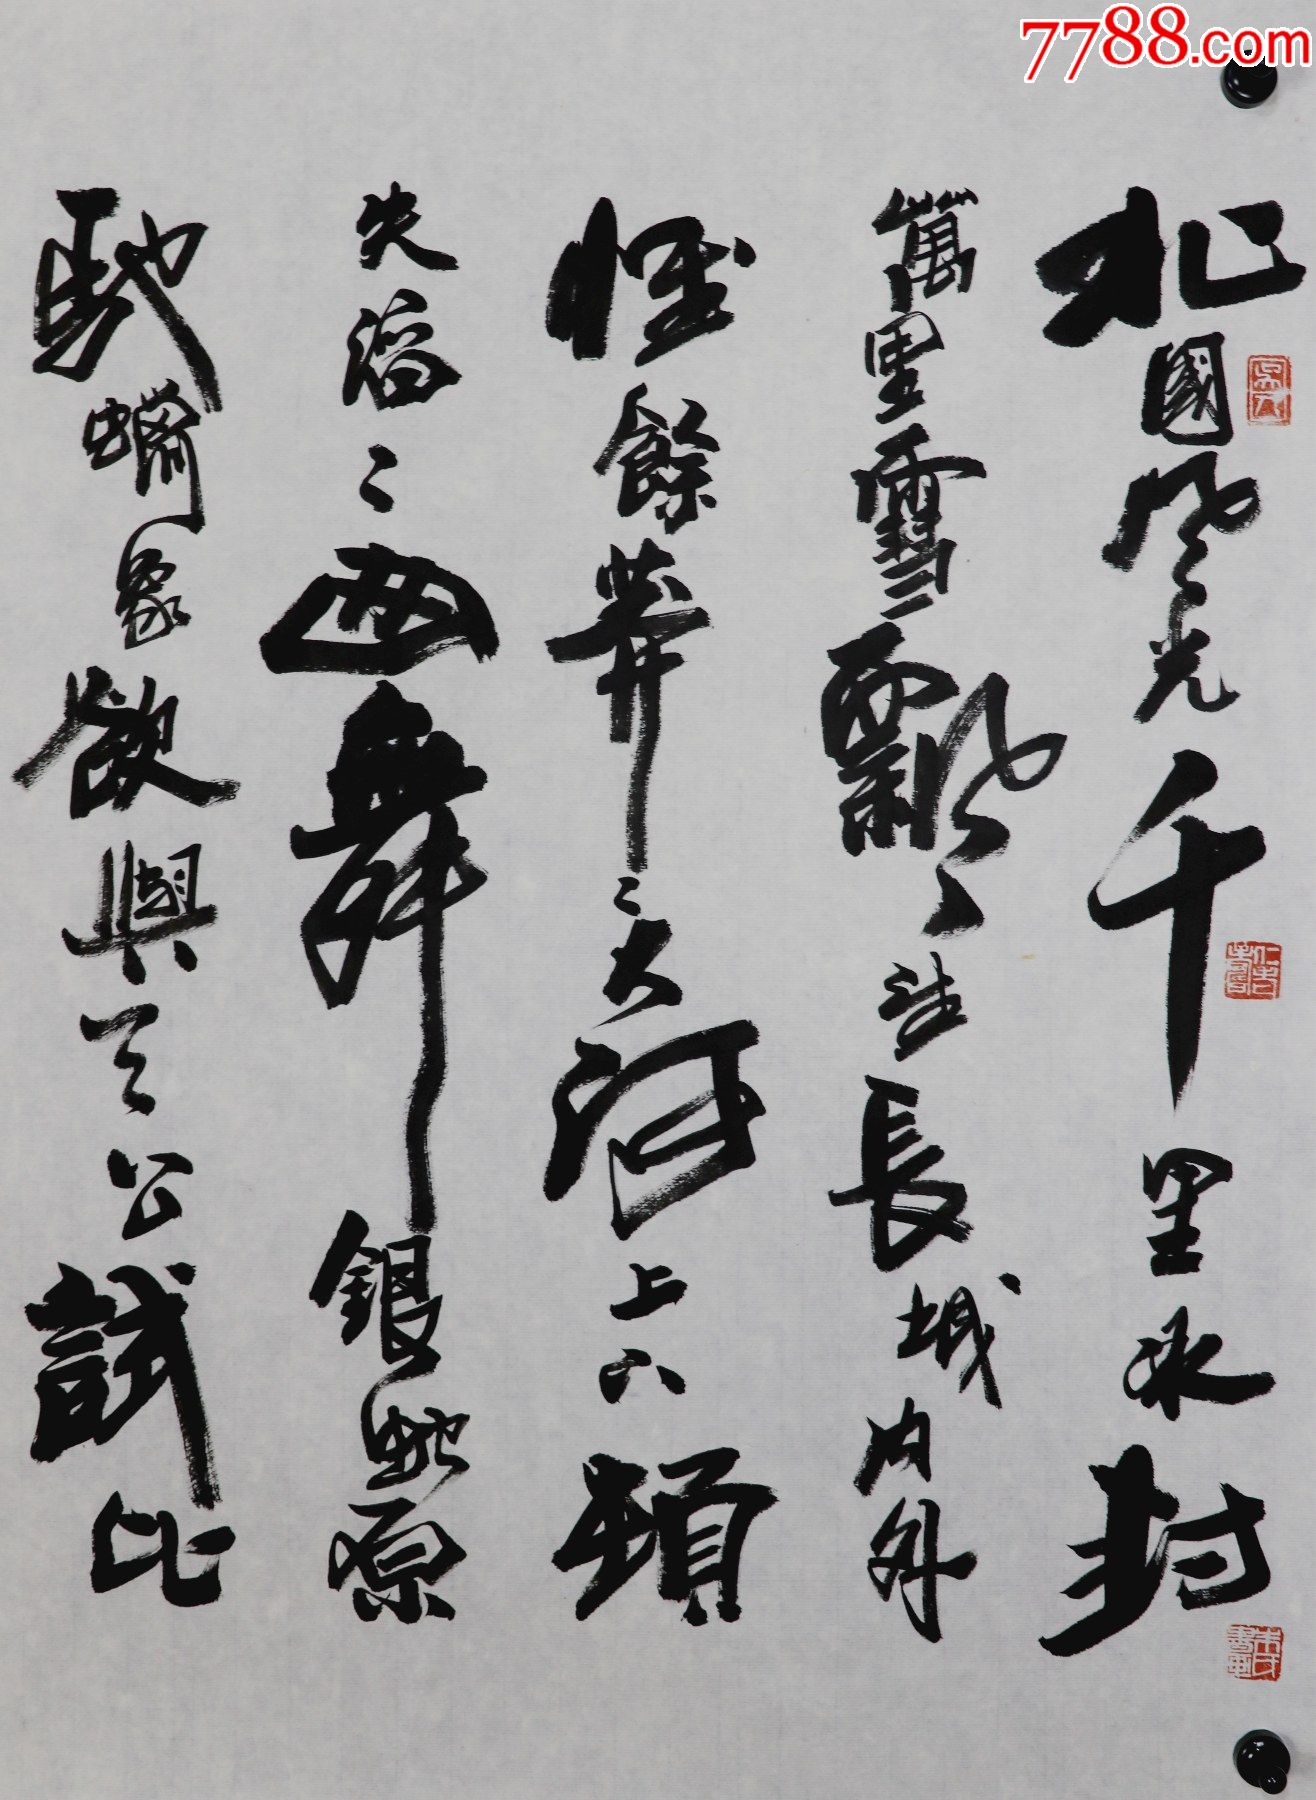 7788.com
北國風光千里冰封
萬里雪飄望長城內外
惟餘莽〻大河上下頓
失滔〻山舞銀蛇原
馳蠟象欲與天公試比
仁者壽